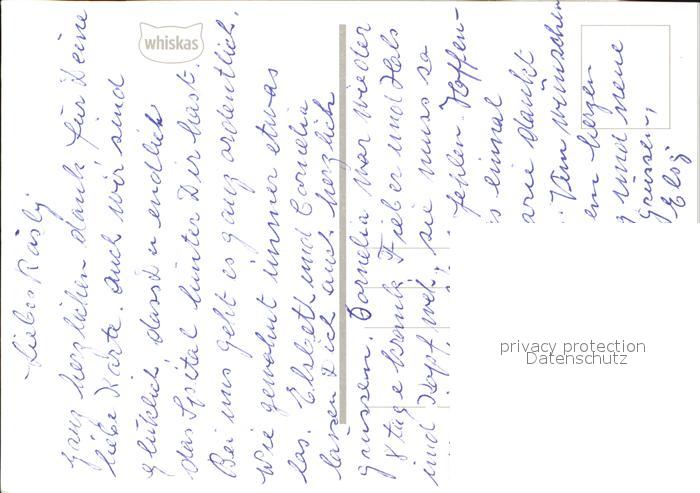 whiskas
Liebes Rösly
ganz herzlichen dank für Deine
liebe Karte. Auch wir sind
glüklich, dass Du endlich
das Spital hinter Dir hast.
Bei uns geht es ganz ordentlich.
Wie gewohnt immer etwas
los. Elsbeth und Cornelia
lassen Dich auch herzlich
grüssen. Cornelia war wieder
8 tage krank. Fieber und Hals
und Kopfweh, sie muss so
fehlen. Hoffen-
s einmal
arie dankt
Nun wünschen
em herzen
und neue
Grüssen,
Elsy
privacy protection
Datenschutz